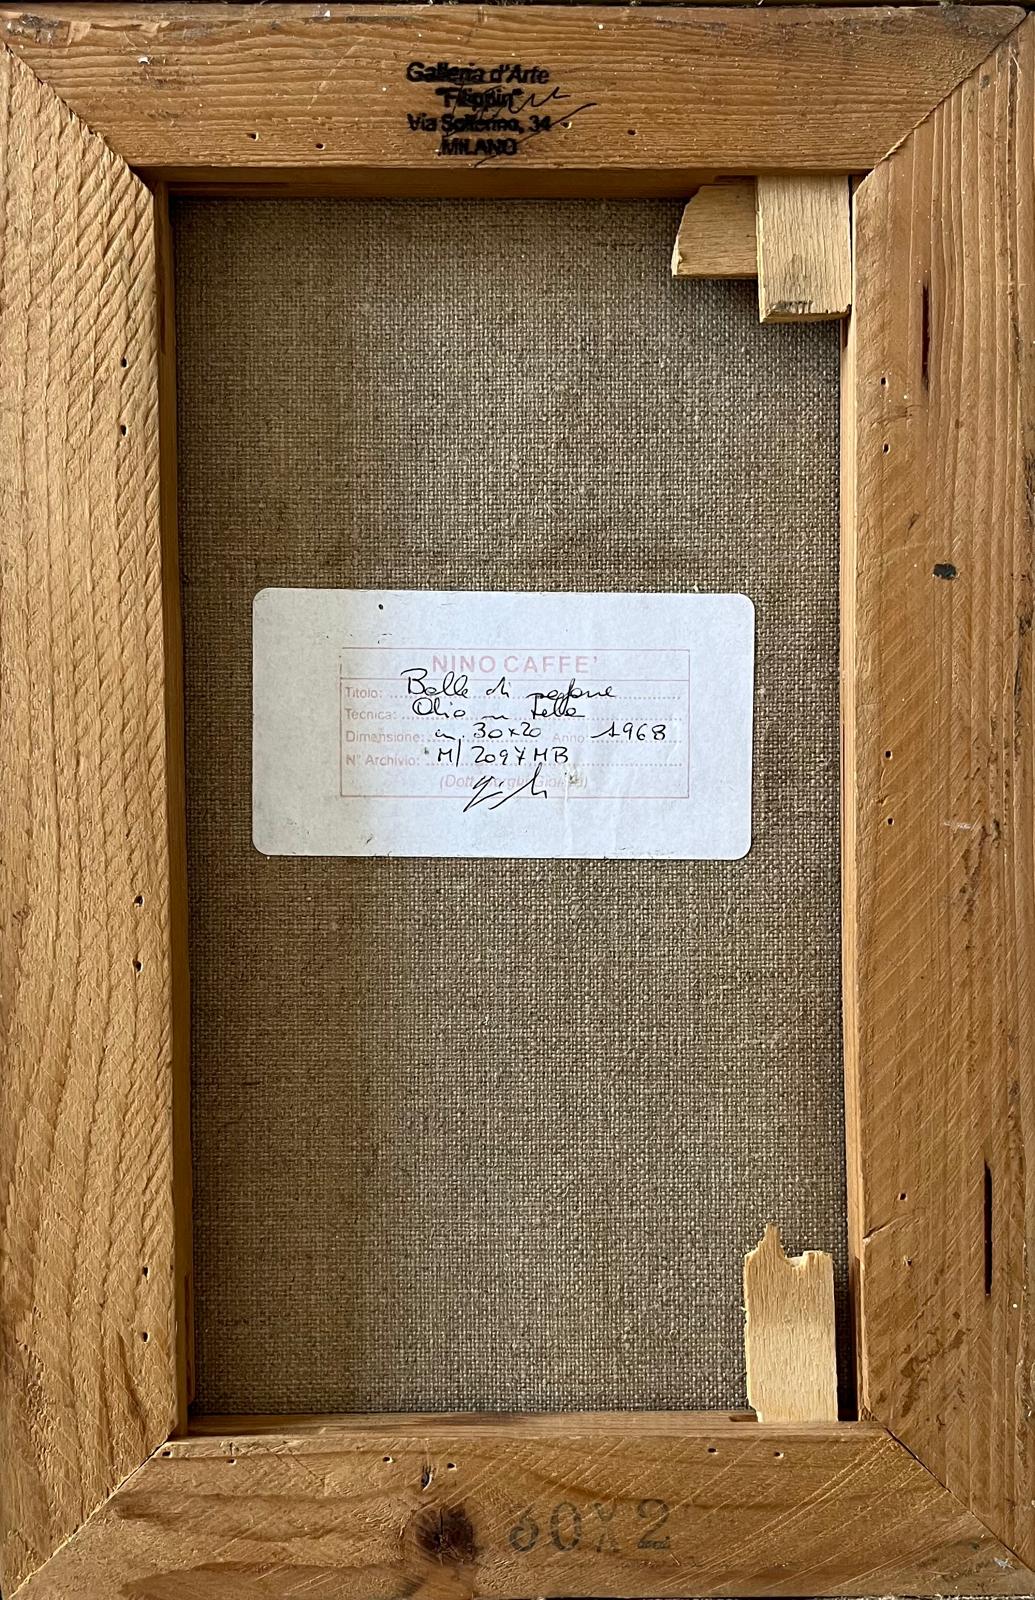 Galleria d'Arte
"Filippin"
Via Solferino, 34
MILANO
NINO CAFFE'
Titolo: Bolle di sapone
Tecnica: Olio su tela
Dimensione: cm. 30x20 Anno: 1968
N° Archivio: M/2097MB
(Dott.
30X2